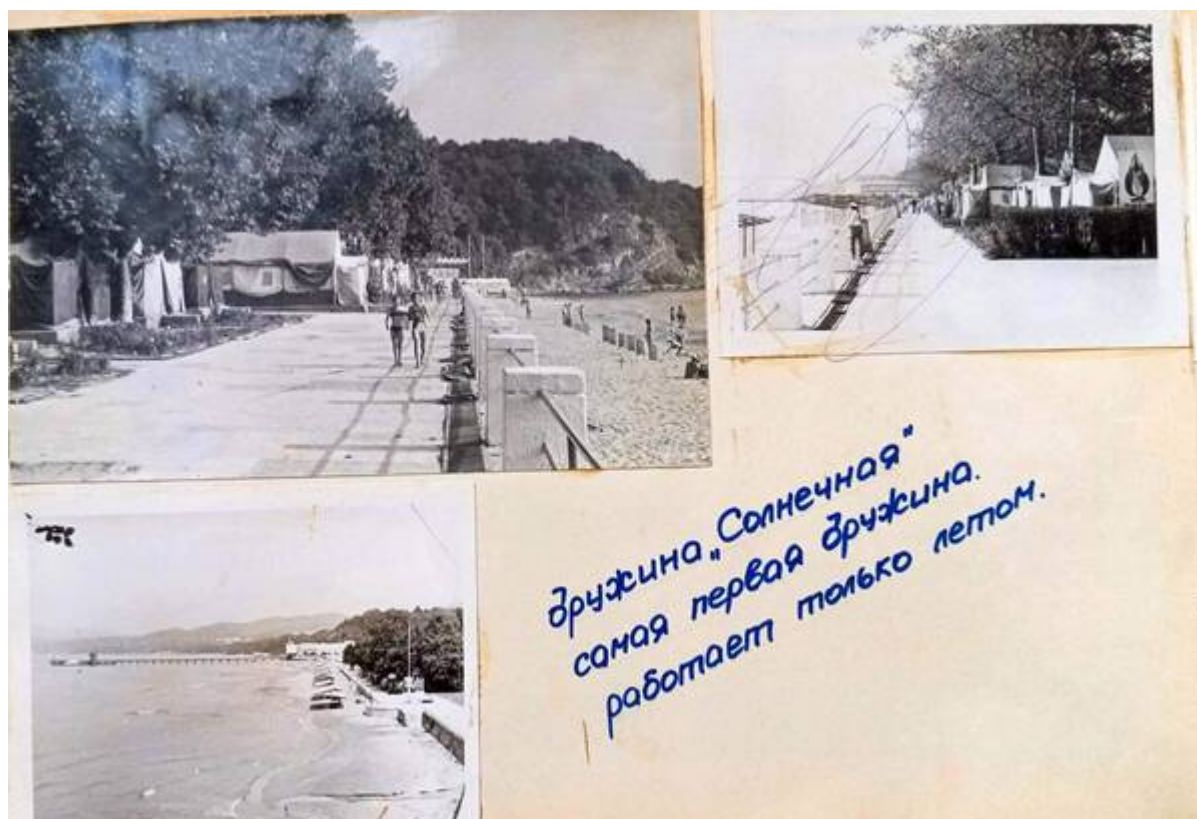 дружина „Солнечная"
самая первая дружина.
работает только летом.